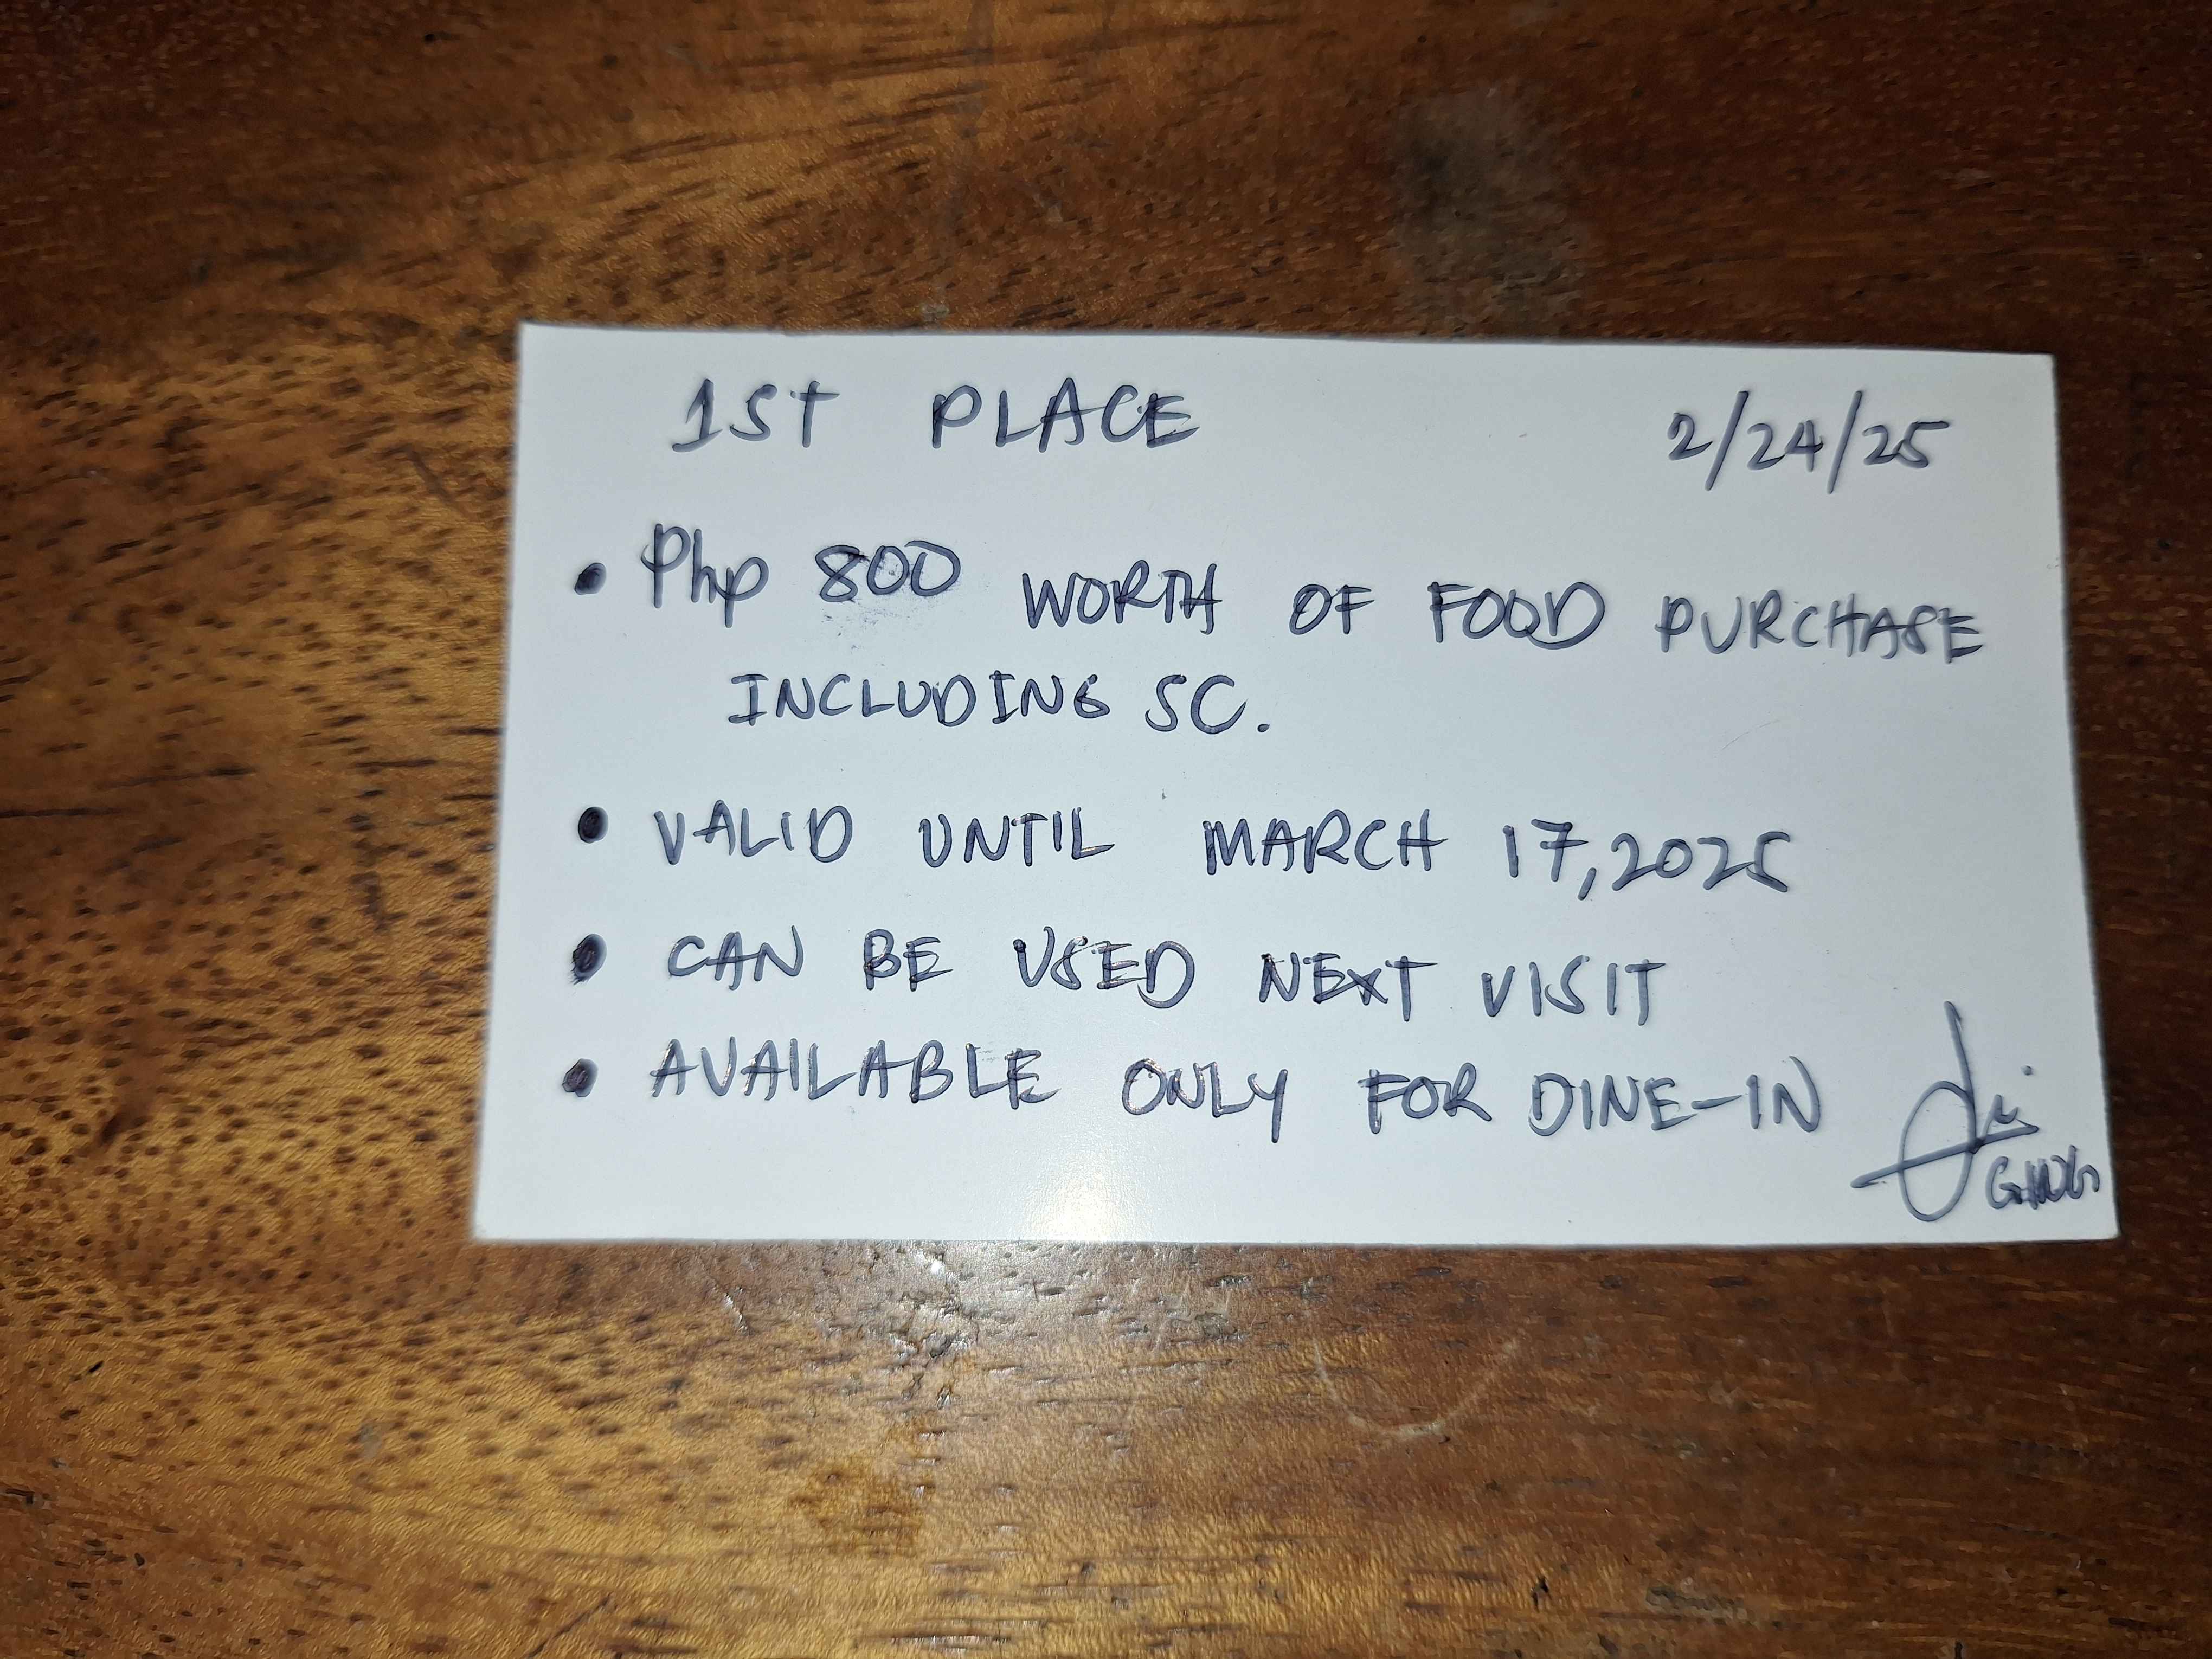 1ST PLACE 2/24/25
• Php 800 WORTH OF FOOD PURCHASE
INCLUDING SC.
• VALID UNTIL MARCH 17, 2025
• CAN BE USED NEXT VISIT
• AVAILABLE ONLY FOR DINE-IN